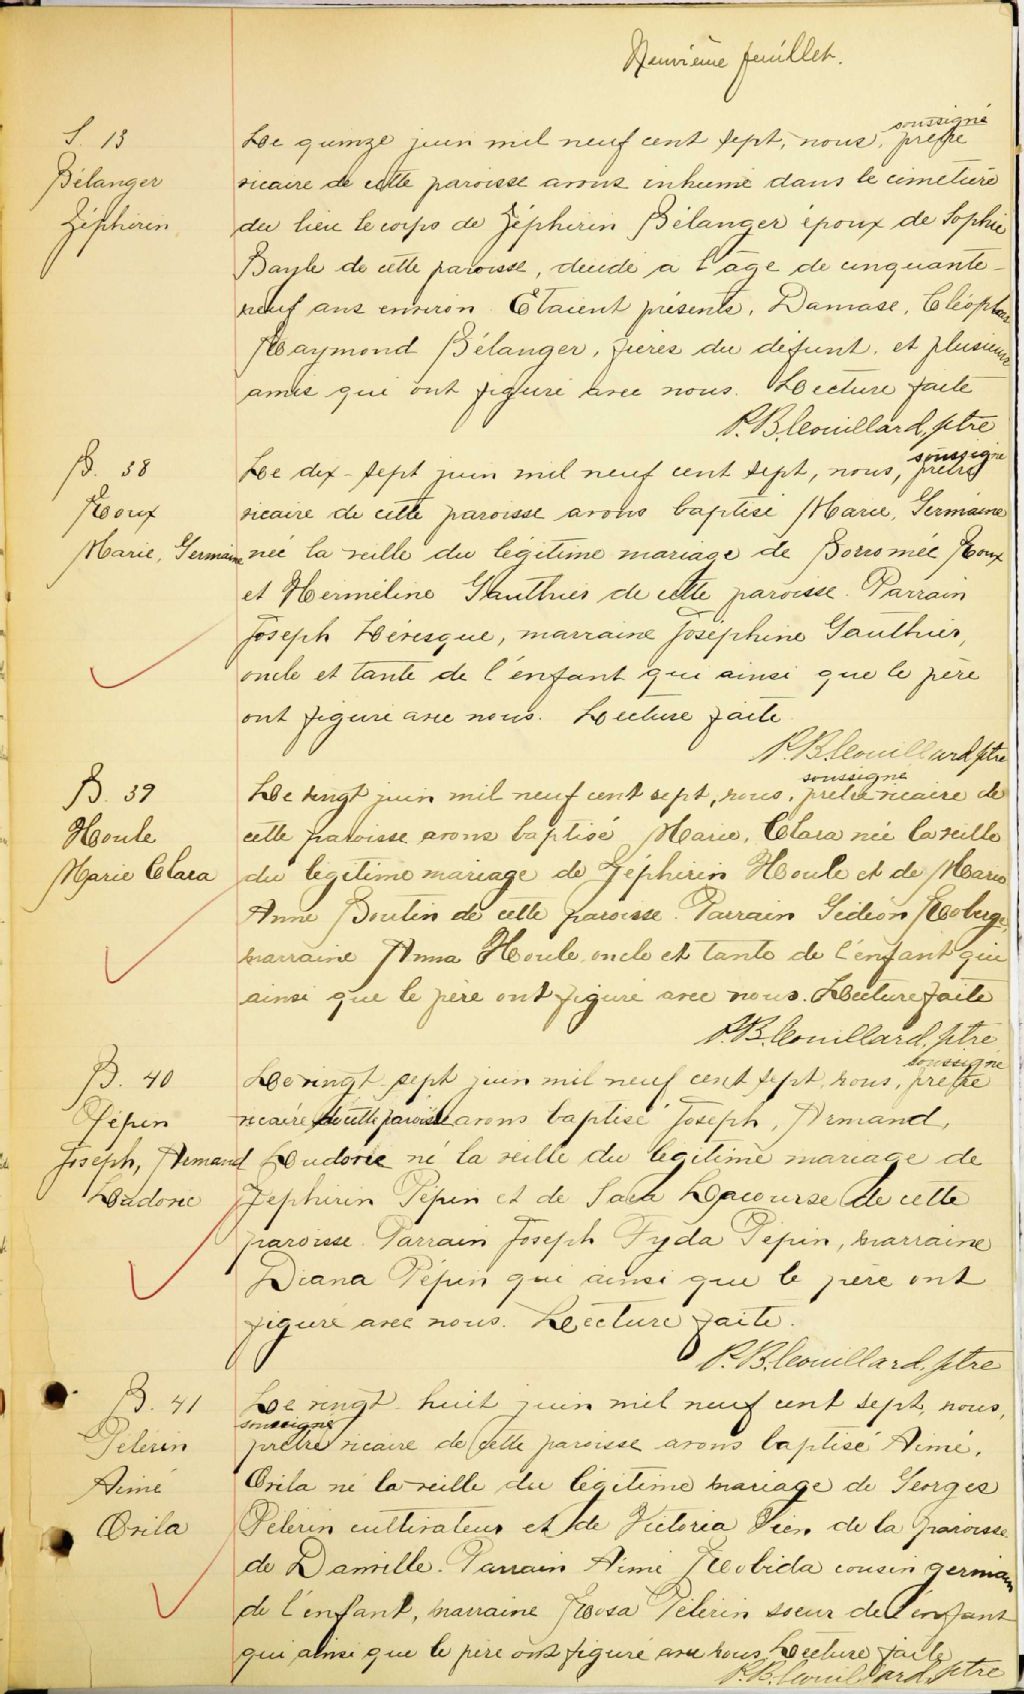 Neuvième feuillet.
S. 13
Bélanger
Zéphirin
Le quinze juin mil neuf cent sept, nous, soussigné prêtre
vicaire de cette paroisse avons inhumé dans le cimetière
du lieu le corps de Zéphirin Bélanger époux de Sophie
Bayle de cette paroisse, décédé à l'âge de cinquante-
neuf ans environ. Etaient présents, Damase, Cléophas
Raymond Bélanger, frères du défunt, et plusieurs
amis qui ont figuré avec nous. Lecture faite
P.B. Couillard, ptre
B. 38
Roux
Marie, Germaine
Le dix-sept juin mil neuf cent sept, nous, soussigné prêtre
vicaire de cette paroisse avons baptisé Marie, Germaine
née la veille du légitime mariage de Borromée Roux
et Herméline Gauthier de cette paroisse. Parrain
Joseph Lévesque, marraine Joséphine Gauthier,
oncle et tante de l'enfant qui ainsi que le père
ont figuré avec nous. Lecture faite
P.B. Couillard ptre
B. 39
Houle
Marie Clara
Le vingt juin mil neuf cent sept, nous, soussigné prêtre vicaire de
cette paroisse avons baptisé Marie, Clara née la veille
du légitime mariage de Zéphirin Houle et de Marie
Anne Boutin de cette paroisse. Parrain Gédéon Roberge,
marraine Anna Houle, oncle et tante de l'enfant qui
ainsi que le père ont figuré avec nous. Lecture faite
P.B. Couillard, ptre
B. 40
Pépin
Joseph, Armand
Ludovic
Le vingt-sept juin mil neuf cent sept, nous, soussigné prêtre
vicaire de cette paroisse avons baptisé Joseph, Armand,
Ludovic né la veille du légitime mariage de
Zéphirin Pépin et de Sara Lacourse de cette
paroisse. Parrain Joseph Fyda Pépin, marraine
Diana Pépin qui ainsi que le père ont
figuré avec nous. Lecture faite.
P.B. Couillard, ptre
B. 41
Pélerin
Aimé
Orila
Le vingt-huit juin mil neuf cent sept, nous,
soussigné prêtre vicaire de cette paroisse avons baptisé Aimé,
Orila né la veille du légitime mariage de Georges
Pélerin cultivateur et de Victoria Vien de la paroisse
de Danville. Parrain Aimé Robida cousin germain
de l'enfant, marraine Rosa Pélerin soeur de l'enfant
qui ainsi que le père ont figuré avec nous. Lecture faite
P.B. Couillard, ptre